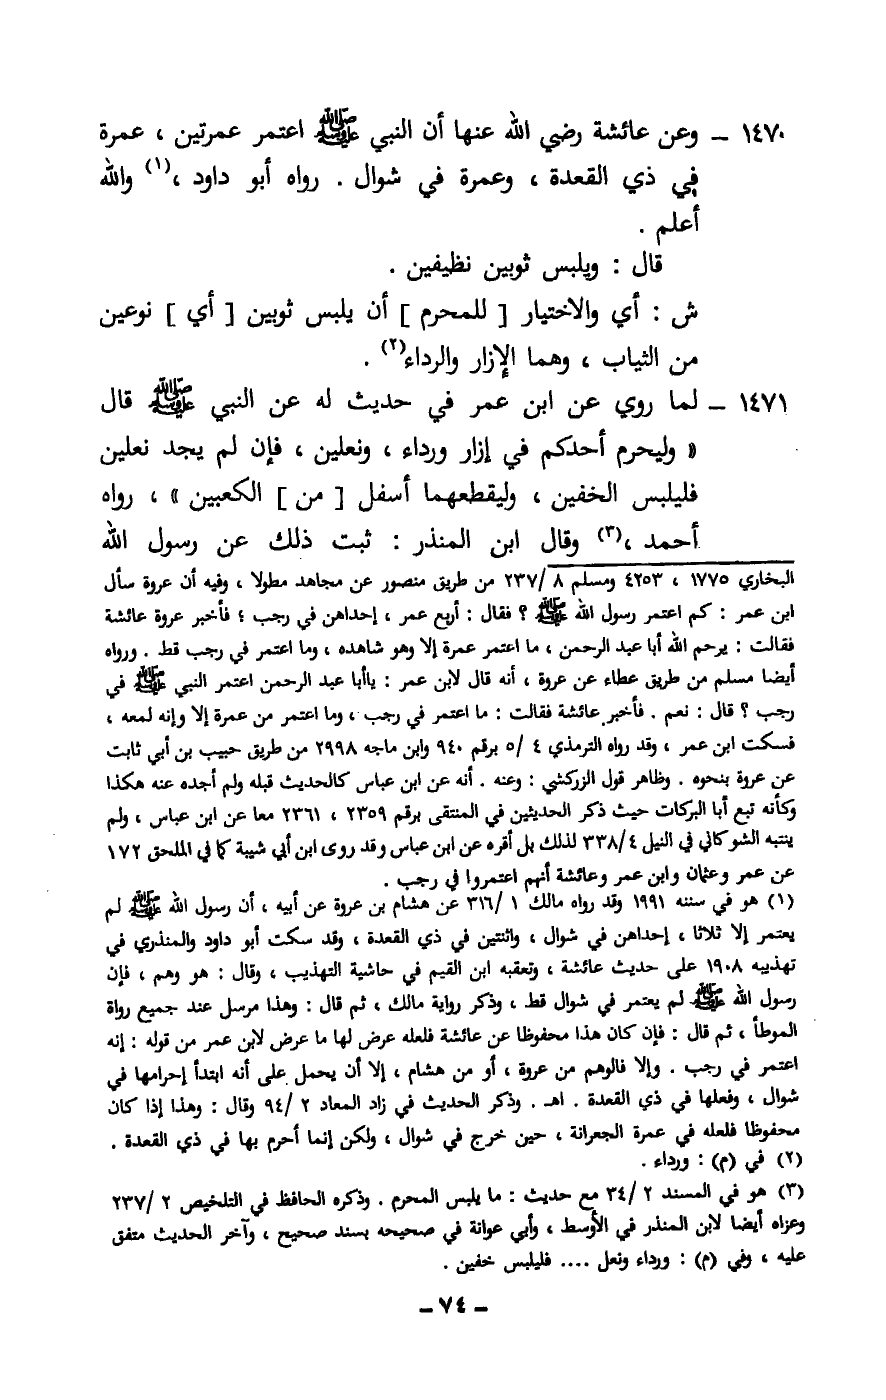 ١٤٧٠ ـ وعن عائشة رضي الله عنها أن النبي ﷺ اعتمر عمرتين ، عمرة
في ذي القعدة ، وعمرة في شوال . رواه أبو داود ،(١) والله
أعلم .
قال : ويلبس ثوبين نظيفين .
ش : أي والاختيار [ للمحرم ] أن يلبس ثوبين [ أي ] نوعين
من الثياب ، وهما الإزار والرداء(٢) .
١٤٧١ ـ لما روي عن ابن عمر في حديث له عن النبي ﷺ قال
« وليحرم أحدكم في إزار ورداء ، ونعلين ، فإن لم يجد نعلين
فليلبس الخفين ، وليقطعهما أسفل [ من ] الكعبين » ، رواه
أحمد ،(٣) وقال ابن المنذر : ثبت ذلك عن رسول الله
البخاري ١٧٧٥ ، ٤٢٥٣ ومسلم ٨ /٢٣٧ من طريق منصور عن مجاهد مطولا ، وفيه أن عروة سأل
ابن عمر : كم اعتمر رسول الله ﷺ ؟ فقال : أربع عمر ، إحداهن في رجب ؛ فأخبر عروة عائشة
فقالت : يرحم الله أبا عبد الرحمن ، ما اعتمر عمرة إلا وهو شاهده ، وما اعتمر في رجب قط . ورواه
أيضا مسلم من طريق عطاء عن عروة ، أنه قال لابن عمر : ياأبا عبد الرحمن اعتمر النبي ﷺ في
رجب ؟ قال : نعم . فأخبر عائشة فقالت : ما اعتمر في رجب ، وما اعتمر من عمرة إلا وإنه لمعه ،
فسكت ابن عمر ، وقد رواه الترمذي ٤ /٥ برقم ٩٤٠ وابن ماجه ٢٩٩٨ من طريق حبيب بن أبي ثابت
عن عروة بنحوه . وظاهر قول الزركشي : وعنه . أنه عن ابن عباس كالحديث قبله ولم أجده عنه هكذا
وكأنه تبع أبا البركات حيث ذكر الحديثين في المنتقى برقم ٢٣٥٩ ، ٢٣٦١ معا عن ابن عباس ، ولم
ينتبه الشوكاني في النيل ٣٣٨/٤ لذلك بل أقره عن ابن عباس وقد روى ابن أبي شيبة كما في الملحق ١٧٢
عن عمر وعثمان وابن عمر وعائشة أنهم اعتمروا في رجب .
(١) هو في سننه ١٩٩١ وقد رواه مالك ١ /٣١٦ عن هشام بن عروة عن أبيه ، أن رسول الله ﷺ لم
يعتمر إلا ثلاثا ، إحداهن في شوال ، واثنتين في ذي القعدة ، وقد سكت أبو داود والمنذري في
تهذيبه ١٩٠٨ على حديث عائشة ، وتعقبه ابن القيم في حاشية التهذيب ، وقال : هو وهم ، فإن
رسول الله ﷺ لم يعتمر في شوال قط ، وذكر رواية مالك ، ثم قال : وهذا مرسل عند جميع رواة
الموطأ ، ثم قال : فإن كان هذا محفوظا عن عائشة فلعله عرض لها ما عرض لابن عمر من قوله : إنه
اعتمر في رجب . وإلا فالوهم من عروة ، أو من هشام ، إلا أن يحمل على أنه ابتدأ إحرامها في
شوال ، وفعلها في ذي القعدة . اهـ . وذكر الحديث في زاد المعاد ٢ /٩٤ وقال : وهذا إذا كان
محفوظا فلعله في عمرة الجعرانة ، حين خرج في شوال ، ولكن إنما أحرم بها في ذي القعدة .
(٢) في (م) : ورداء .
(٣) هو في المسند ٢ /٣٤ مع حديث : ما يلبس المحرم . وذكره الحافظ في التلخيص ٢ /٢٣٧
وعزاه أيضا لابن المنذر في الأوسط ، وأبي عوانة في صحيحه بسند صحيح ، وآخر الحديث متفق
عليه ، وفي (م) : ورداء ونعل .... فليلبس خفين .
ـ ٧٤ ـ